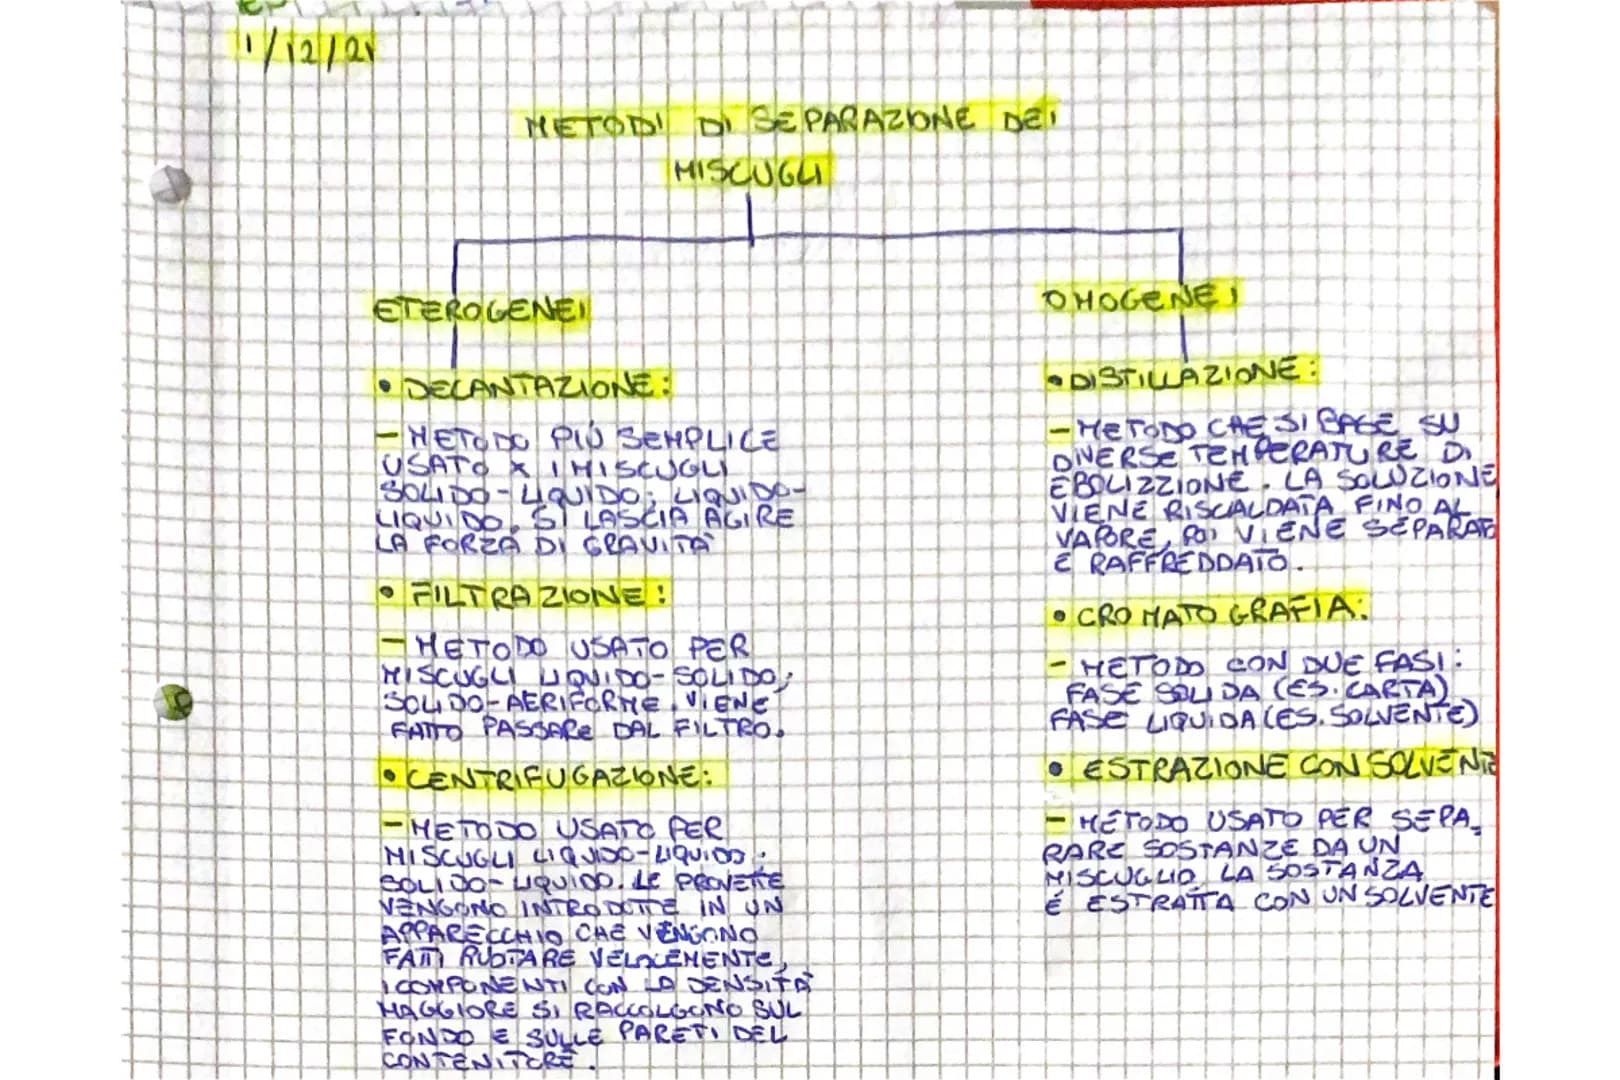 1/12/21
METODI DI SEPARAZIONE DEI
MISCUGLI
ETEROGENEI
• DECANTAZIONE:
- METODO PIÙ SEMPLICE
USATO X I MISCUGLI
SOLIDO-LIQUIDO; LIQUIDO-
LIQUIDO. SI LASCIA AGIRE
LA FORZA DI GRAVITÀ
• FILTRAZIONE:
- METODO USATO PER
MISCUGLI LIQUIDO-SOLIDO;
SOLIDO-AERIFORME. VIENE
FATTO PASSARE DAL FILTRO.
• CENTRIFUGAZIONE:
- METODO USATO PER
MISCUGLI LIQUIDO-LIQUIDO;
SOLIDO-LIQUIDO. LE PROVETTE
VENGONO INTRODOTTE IN UN
APPARECCHIO CHE VENGONO
FATTI RUOTARE VELOCEMENTE,
I COMPONENTI CON LA DENSITÀ
MAGGIORE SI RACCOLGONO SUL
FONDO E SULLE PARETI DEL
CONTENITORE.
OMOGENEI
• DISTILLAZIONE:
- METODO CHE SI BASE SU
DIVERSE TEMPERATURE DI
EBOLIZZIONE. LA SOLUZIONE
VIENE RISCALDATA FINO AL
VAPORE, POI VIENE SEPARATO
E RAFFREDDATO.
• CROMATOGRAFIA:
- METODO CON DUE FASI:
FASE SOLIDA (ES. CARTA)
FASE LIQUIDA (ES. SOLVENTE)
• ESTRAZIONE CON SOLVENTE
- METODO USATO PER SEPA_
RARE SOSTANZE DA UN
MISCUGLIO. LA SOSTANZA
É ESTRATTA CON UN SOLVENTE